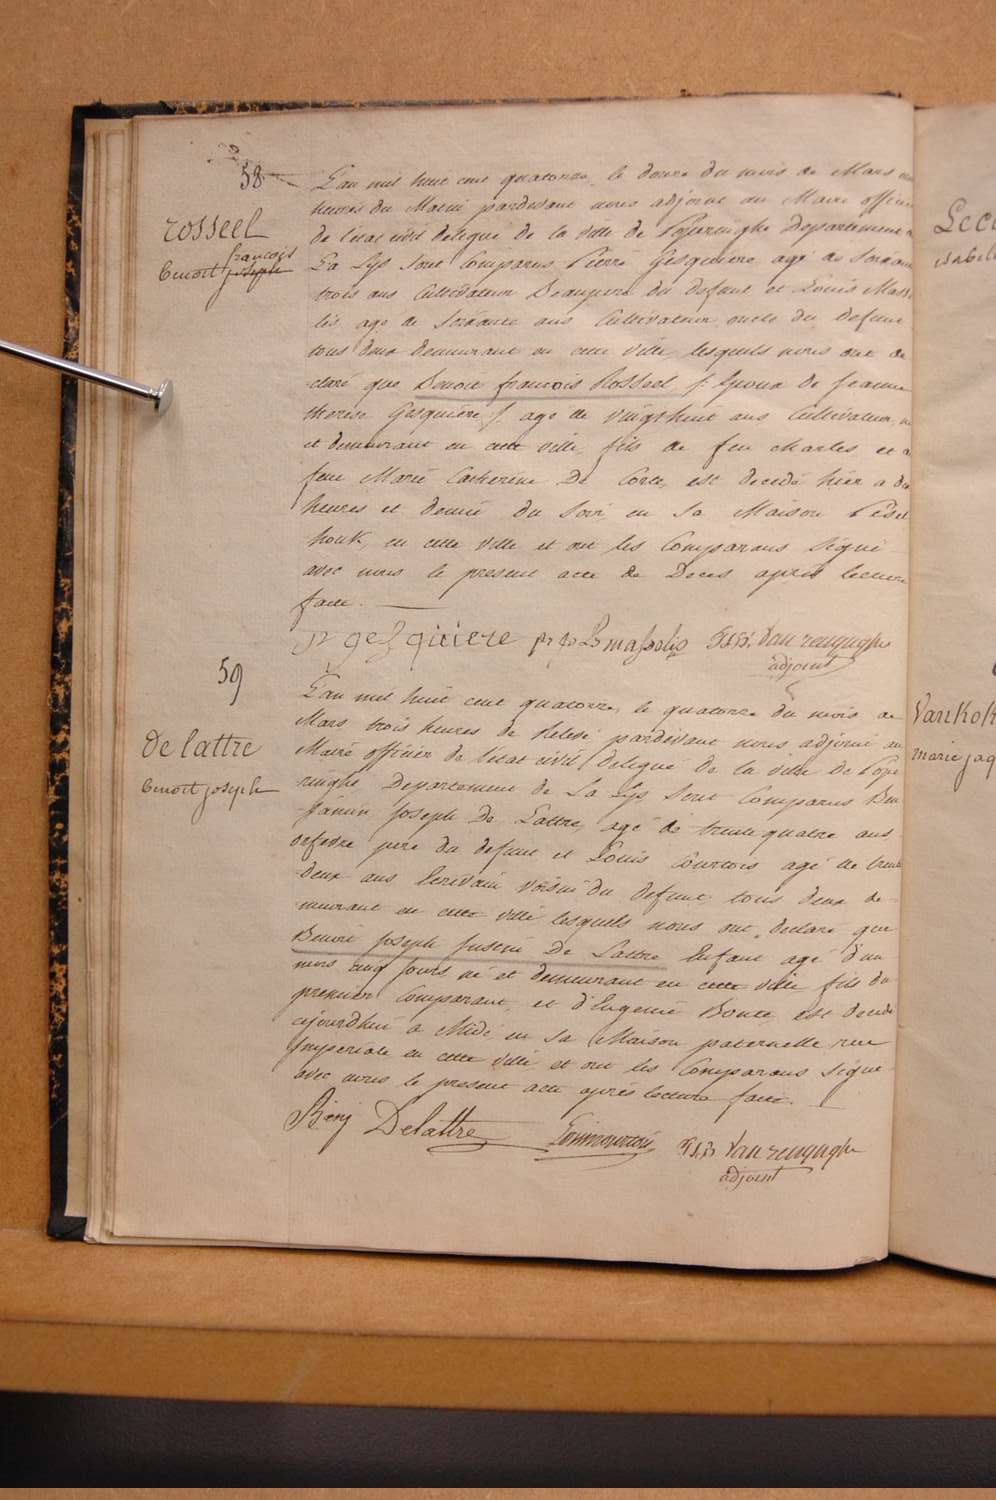 58
rosseel
françois
benoit joseph
L'an mil huit cent quatorze, le douze du mois de Mars
heures du Matin pardevant nous adjoint au Maire officier
de l'état civil delegué de la ville de Poperinghe Departement
La Lys sont Comparus Pierre Gesquiere agé de soixante
trois ans Cultivateur Beaupere du defunt et Louis Mass
lis agé de soixante ans Cultivateur oncle du defunt
tous deux demeurant en cette ville, lesquels nous ont de
claré que Benoit françois Rosseel /: Epoux de Jeanne
therese Gesquiere :/ agé de vingthuit ans Cultivateur, né
et demeurant en cette ville, fils de feu Charles et de
feue Marie Catherine De Corte, est decedé hier a dix
heures et demie du soir, en sa Maison
houk, en cette ville et ont les Comparans signé
avec nous le present acte de Deces après lecture
faite.
p gesquiere masselis van renynghe
adjoint
59
De lattre
benoit joseph
L'an mil huit cent quatorze, le quatorze du mois de
Mars trois heures de Relevé pardevant nous adjoint au
Maire officier de l'état civil delegué de la ville de Pope
ringhe Departement de La Lys sont Comparus Ben
jamin Joseph De Lattre, agé de trente quatre ans
orfevre pere du defunt et Louis Courtois agé de trente
deux ans Ecrivain voisin du defunt tous deux de-
meurant en cette ville lesquels nous ont declaré que
Benoit Joseph Justin De Lattre Enfant agé d'un
mois cinq jours, né et demeurant en cette ville fils du
premier Comparant, et d'Eugenie Bonte, est decedé
cejourdhui a Midi, en sa Maison paternelle rue
Imperiale en cette ville et ont les Comparans signé
avec nous le present acte après lecture faite.
Benj Delattre Louis Courtois van renynghe
adjoint
Lecl
isabel
Vankok
marie jaq